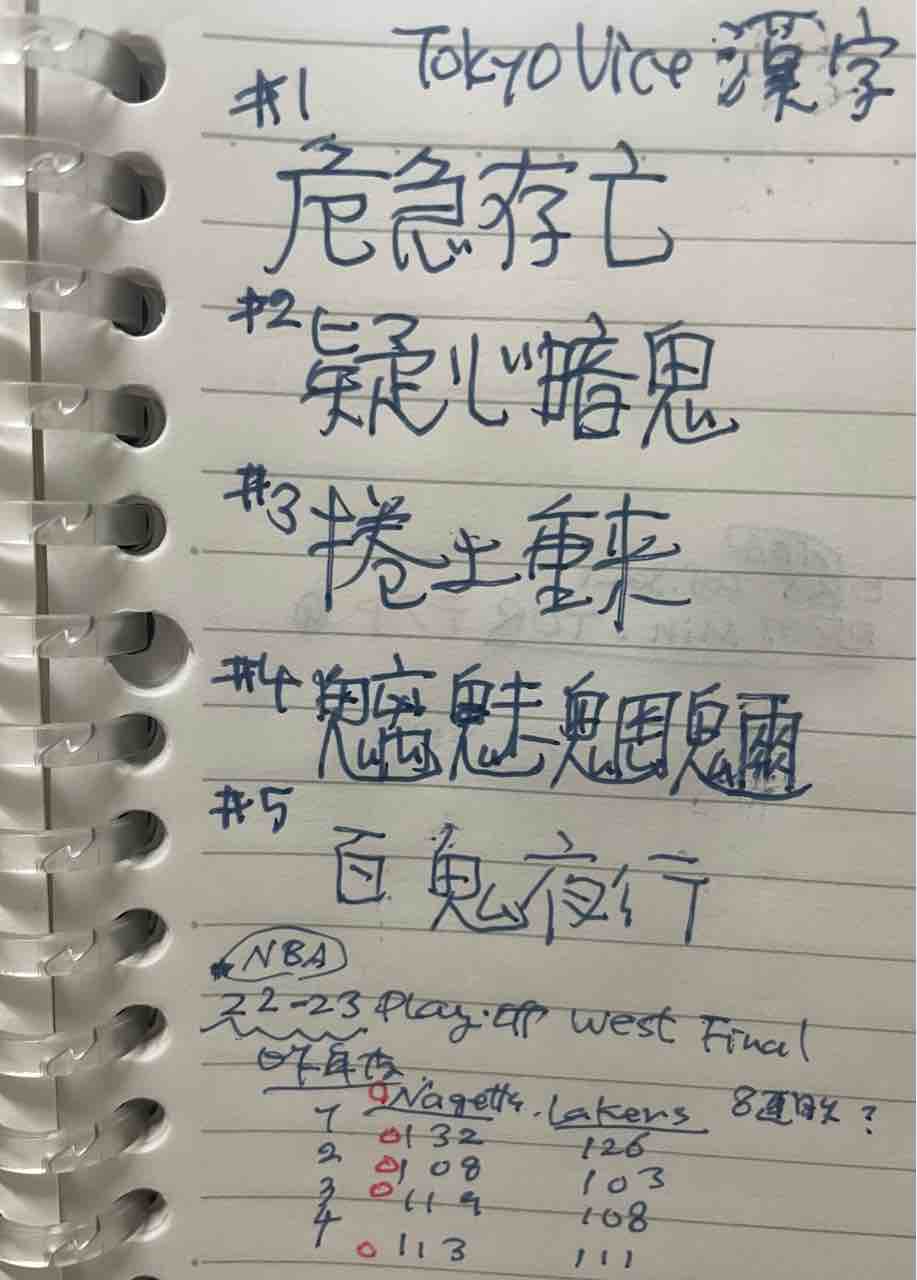 Tokyo Vice 漢字
#1
危急存亡
#2
疑心暗鬼
#3
捲土重来
#4
魑魅魍魎
#5
百鬼夜行
NBA
22-23 Play.off West Final
昨年度
Nagetts. Lakers 8連敗?
1 132 126
2 108 103
3 119 108
4 113 111